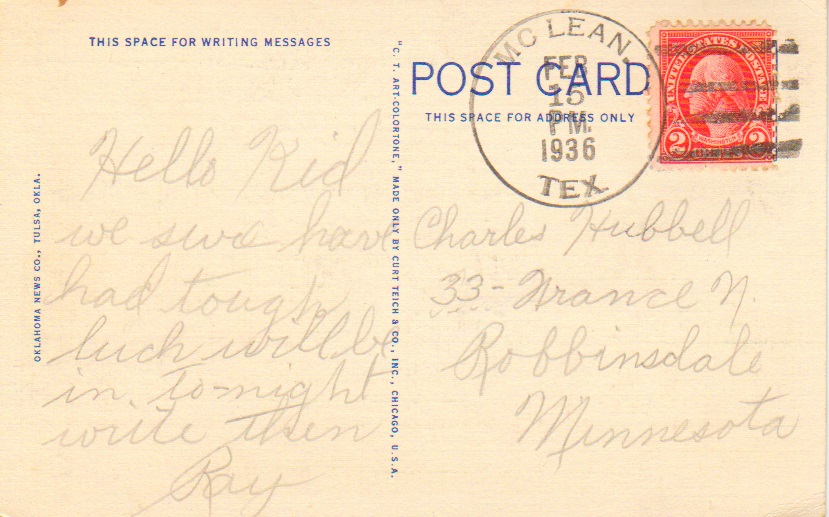 THIS SPACE FOR WRITING MESSAGES
Hello Kid
we sure have
had tough
luck will be
in to-night
write then
Ray
OKLAHOMA NEWS CO., TULSA, OKLA.
"C. T. ART-COLORTONE," MADE ONLY BY CURT TEICH & CO., INC., CHICAGO, U.S.A.
POST CARD
THIS SPACE FOR ADDRESS ONLY
MC LEAN.
FEB
15
PM.
1936
TEX
UNITED STATES POSTAGE
WASHINGTON
2 2
Charles Hubbell
33- France N.
Robbinsdale
Minnesota